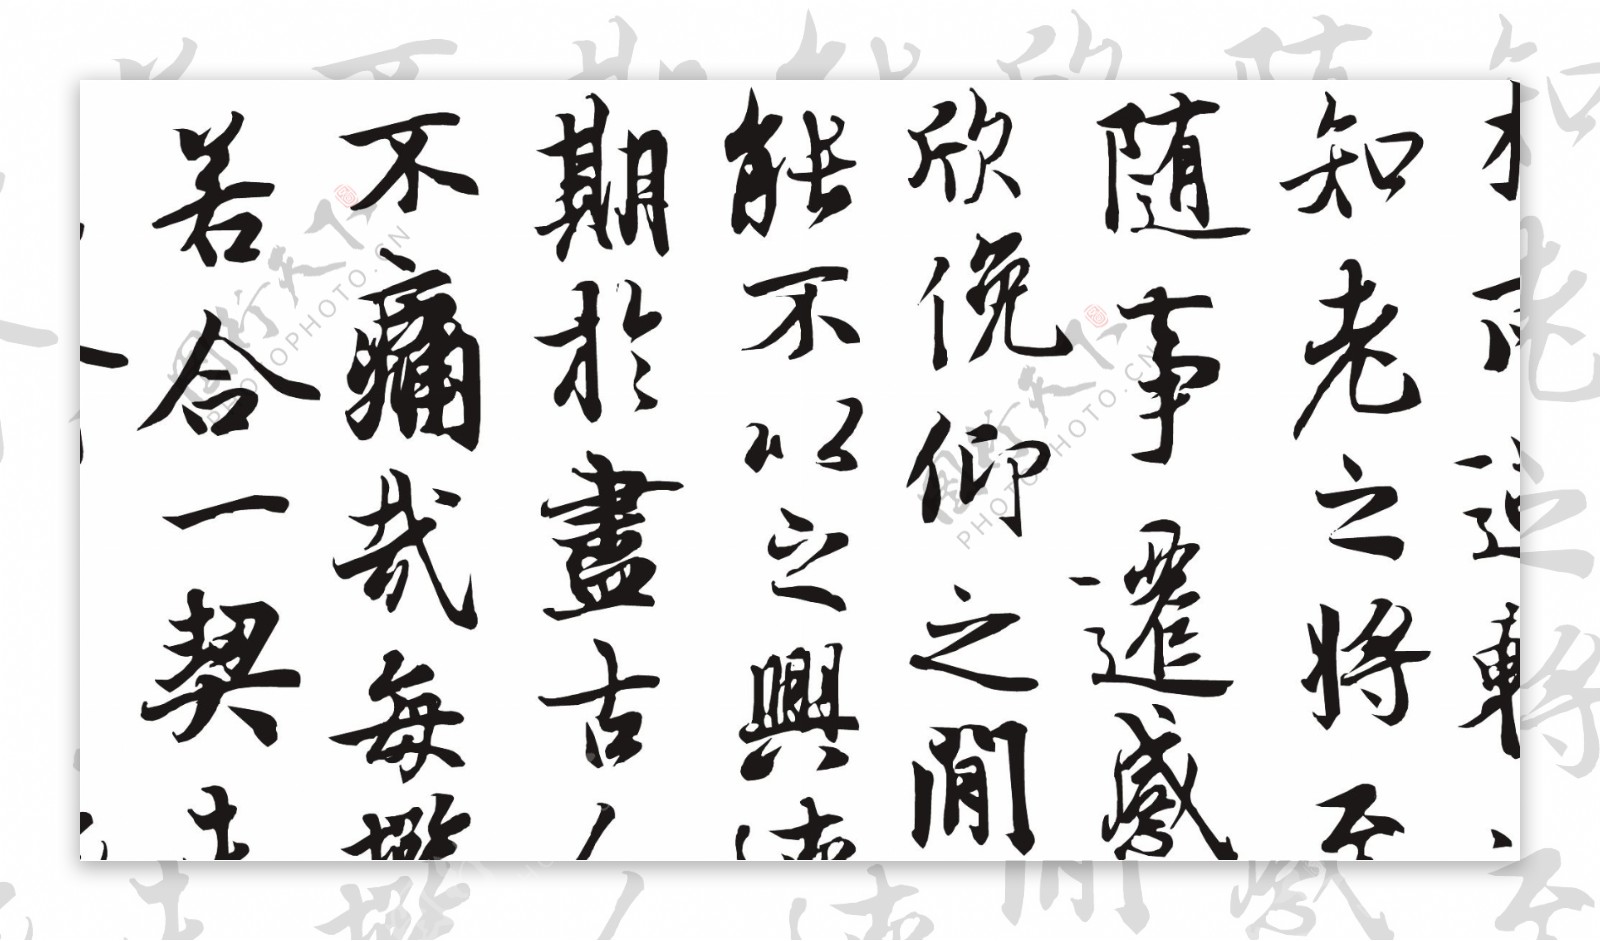 知老之将至
随事遷感
欣俛仰之閒
能不以之興
期於盡古人
不痛哉每攬
若合一契
图行天下
PHOTOPHOTO.CN
图行天下
PHOTOPHOTO.CN